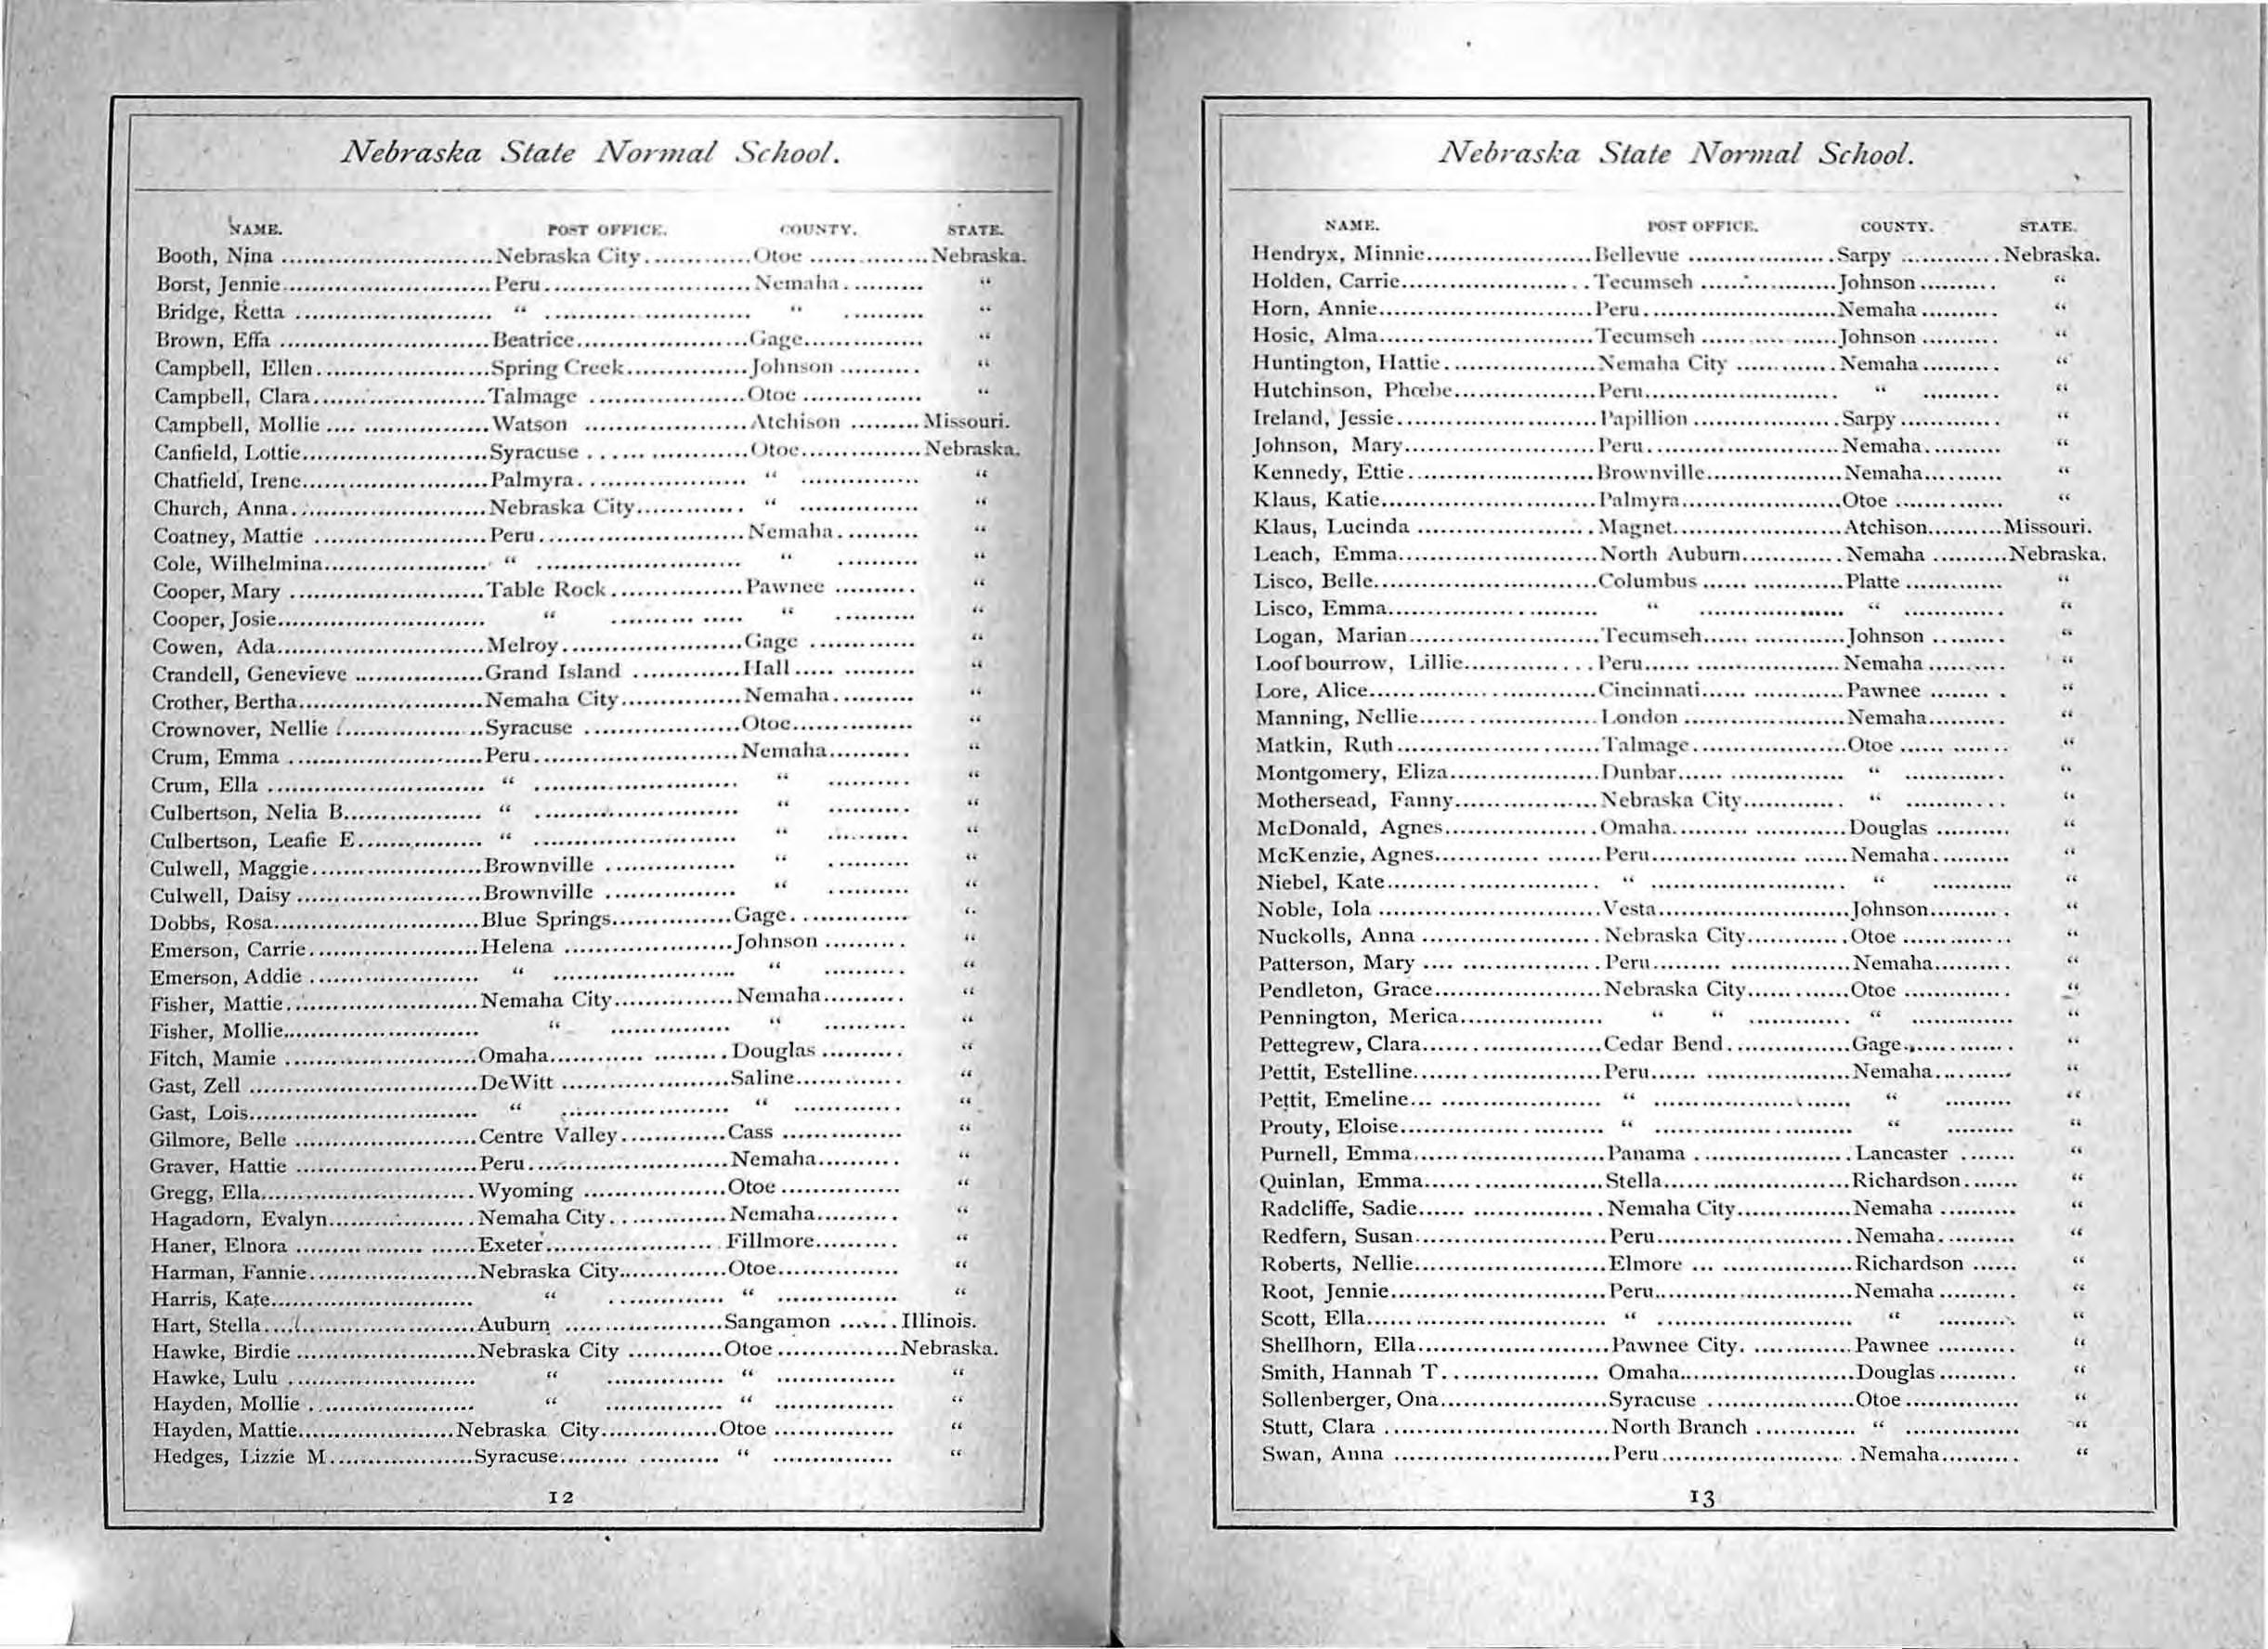 Nebraska State Normal School.
NAME. POST OFFICE. COUNTY. STATE.
Booth, Nina ........ Nebraska City ........ Otoe ........ Nebraska.
Borst, Jennie ........ Peru ........ Nemaha ........ “
Bridge, Retta ........ “ ........ “ ........ “
Brown, Effa ........ Beatrice ........ Gage ........ “
Campbell, Ellen ........ Spring Creek ........ Johnson ........ “
Campbell, Clara ........ Talmage ........ Otoe ........ “
Campbell, Mollie ........ Watson ........ Atchison ........ Missouri.
Canfield, Lottie ........ Syracuse ........ Otoe ........ Nebraska.
Chatfield, Irene ........ Palmyra ........ “ ........ “
Church, Anna ........ Nebraska City ........ “ ........ “
Coatney, Mattie ........ Peru ........ Nemaha ........ “
Cole, Wilhelmina ........ “ ........ “ ........ “
Cooper, Mary ........ Table Rock ........ Pawnee ........ “
Cooper, Josie ........ “ ........ “ ........ “
Cowen, Ada ........ Melroy ........ Gage ........ “
Crandell, Genevieve ........ Grand Island ........ Hall ........ “
Crother, Bertha ........ Nemaha City ........ Nemaha ........ “
Crownover, Nellie ........ Syracuse ........ Otoe ........ “
Crum, Emma ........ Peru ........ Nemaha ........ “
Crum, Ella ........ “ ........ “ ........ “
Culbertson, Nelia B ........ “ ........ “ ........ “
Culbertson, Leafie E ........ “ ........ “ ........ “
Culwell, Maggie ........ Brownville ........ “ ........ “
Culwell, Daisy ........ Brownville ........ “ ........ “
Dobbs, Rosa ........ Blue Springs ........ Gage ........ “
Emerson, Carrie ........ Helena ........ Johnson ........ “
Emerson, Addie ........ “ ........ “ ........ “
Fisher, Mattie ........ Nemaha City ........ Nemaha ........ “
Fisher, Mollie ........ “ ........ “ ........ “
Fitch, Mamie ........ Omaha ........ Douglas ........ “
Gast, Zell ........ DeWitt ........ Saline ........ “
Gast, Lois ........ “ ........ “ ........ “
Gilmore, Belle ........ Centre Valley ........ Cass ........ “
Graver, Hattie ........ Peru ........ Nemaha ........ “
Gregg, Ella ........ Wyoming ........ Otoe ........ “
Hagadorn, Evalyn ........ Nemaha City ........ Nemaha ........ “
Haner, Elnora ........ Exeter ........ Fillmore ........ “
Harman, Fannie ........ Nebraska City ........ Otoe ........ “
Harris, Kate ........ “ ........ “ ........ “
Hart, Stella ........ Auburn ........ Sangamon ........ Illinois.
Hawke, Birdie ........ Nebraska City ........ Otoe ........ Nebraska.
Hawke, Lulu ........ “ ........ “ ........ “
Hayden, Mollie ........ “ ........ “ ........ “
Hayden, Mattie ........ Nebraska City ........ Otoe ........ “
Hedges, Lizzie M ........ Syracuse ........ “ ........ “
12
Nebraska State Normal School.
NAME. POST OFFICE. COUNTY. STATE.
Hendryx, Minnie ........ Bellevue ........ Sarpy ........ Nebraska.
Holden, Carrie ........ Tecumseh ........ Johnson ........ “
Horn, Annie ........ Peru ........ Nemaha ........ “
Hosic, Alma ........ Tecumseh ........ Johnson ........ “
Huntington, Hattie ........ Nemaha City ........ Nemaha ........ “
Hutchinson, Phœbe ........ Peru ........ “ ........ “
Ireland, Jessie ........ Papillion ........ Sarpy ........ “
Johnson, Mary ........ Peru ........ Nemaha ........ “
Kennedy, Ettie ........ Brownville ........ Nemaha ........ “
Klaus, Katie ........ Palmyra ........ Otoe ........ “
Klaus, Lucinda ........ Magnet ........ Atchison ........ Missouri.
Leach, Emma ........ North Auburn ........ Nemaha ........ Nebraska.
Lisco, Belle ........ Columbus ........ Platte ........ “
Lisco, Emma ........ “ ........ “ ........ “
Logan, Marian ........ Tecumseh ........ Johnson ........ “
Loofbourrow, Lillie ........ Peru ........ Nemaha ........ “
Lore, Alice ........ Cincinnati ........ Pawnee ........ “
Manning, Nellie ........ London ........ Nemaha ........ “
Matkin, Ruth ........ Talmage ........ Otoe ........ “
Montgomery, Eliza ........ Dunbar ........ “ ........ “
Mothersead, Fanny ........ Nebraska City ........ “ ........ “
McDonald, Agnes ........ Omaha ........ Douglas ........ “
McKenzie, Agnes ........ Peru ........ Nemaha ........ “
Niebel, Kate ........ “ ........ “ ........ “
Noble, Iola ........ Vesta ........ Johnson ........ “
Nuckolls, Anna ........ Nebraska City ........ Otoe ........ “
Patterson, Mary ........ Peru ........ Nemaha ........ “
Pendleton, Grace ........ Nebraska City ........ Otoe ........ “
Pennington, Merica ........ “ “ ........ “ ........ “
Pettegrew, Clara ........ Cedar Bend ........ Gage ........ “
Pettit, Estelline ........ Peru ........ Nemaha ........ “
Pettit, Emeline ........ “ ........ “ ........ “
Prouty, Eloise ........ “ ........ “ ........ “
Purnell, Emma ........ Panama ........ Lancaster ........ “
Quinlan, Emma ........ Stella ........ Richardson ........ “
Radcliffe, Sadie ........ Nemaha City ........ Nemaha ........ “
Redfern, Susan ........ Peru ........ Nemaha ........ “
Roberts, Nellie ........ Elmore ........ Richardson ........ “
Root, Jennie ........ Peru ........ Nemaha ........ “
Scott, Ella ........ “ ........ “ ........ “
Shellhorn, Ella ........ Pawnee City ........ Pawnee ........ “
Smith, Hannah T ........ Omaha ........ Douglas ........ “
Sollenberger, Ona ........ Syracuse ........ Otoe ........ “
Stutt, Clara ........ North Branch ........ “ ........ “
Swan, Anna ........ Peru ........ Nemaha ........ “
13